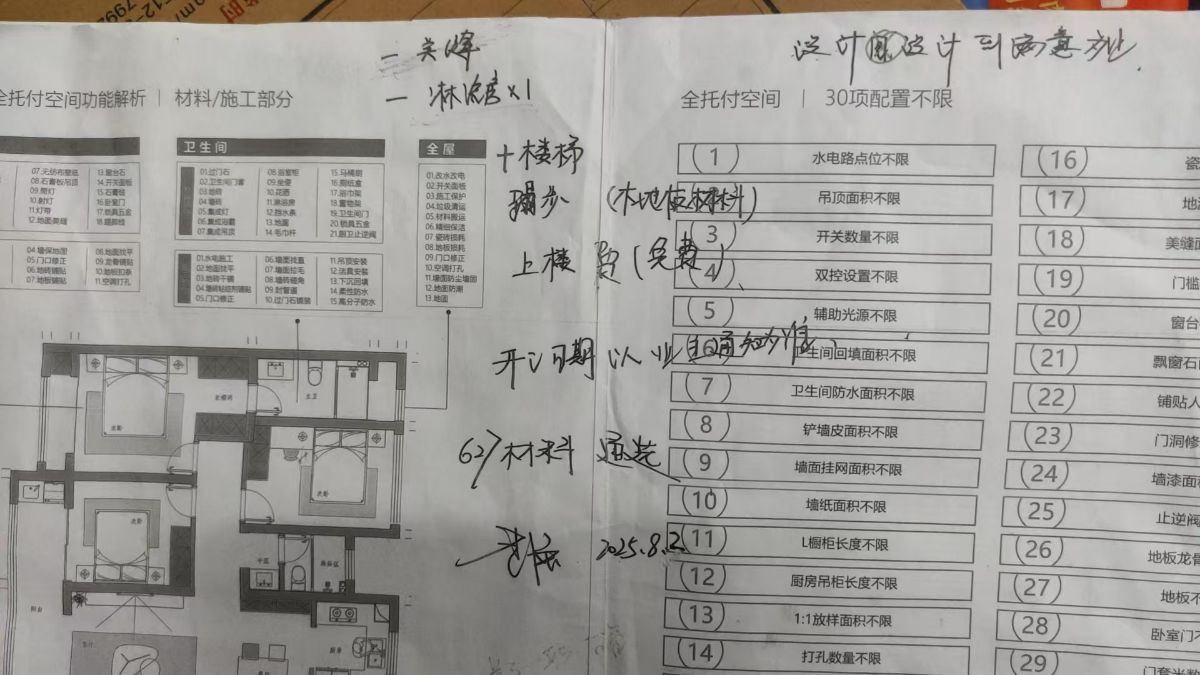 设计图设计到满意为止
淋浴房×1
全托付空间功能解析 | 材料/施工部分
全托付空间 | 30项配置不限
07.无纺布壁底
08.石膏板吊顶
09.筒灯
10.射灯
11.灯带
12.地面美缝
13.窗台石
14.开关面板
15.石膏板
16.卧室门
17.锁具五金
18.踢脚线
04.墙保地固
05.门口修正
06.地砖铺贴
07.地板铺贴
08.地面找平
09.龙骨铺贴
10.地板扣条
11.空调打孔
卫生间
01.过门石
02.卫生间门套
03.地砖
04.墙砖
05.集成灯
06.集成浴霸
07.集成吊顶
08.浴室柜
09.坐便
10.花洒
11.淋浴房
12.挡水条
13.地漏
14.毛巾杆
15.马桶刷
16.厕纸盒
17.浴巾架
18.置物架
19.卫生间门
20.锁具五金
21.厨卫止逆阀
01.水电施工
02.地面找平
03.地砖干铺
04.墙砖粘结剂铺贴
05.门口修正
06.墙面找直
07.墙面拉毛
08.墙砖碰角
09.封管道
10.过门石铺装
11.吊顶安装
12.洁具安装
13.下沉回填
14.柔性防水
15.高分子防水
全屋
01.改水改电
02.开关面板
03.施工保护
04.垃圾清运
05.材料搬运
06.精细保洁
07.瓷砖损耗
08.地板损耗
09.门口修正
10.空调打孔
11.墙面防尘墙固
12.地面防潮
13.地固
十楼梯
踏步（本地值材料）
上楼费（免费）
开工日期以业主通知为准
627材料 通装
2025.8.2
次卧
衣帽间
主卫
次卧
次卧
干区
淋浴区
阳台
客厅
厨房
1 水电路点位不限
吊顶面积不限
3 开关数量不限
4 双控设置不限
5 辅助光源不限
生间回填面积不限
7 卫生间防水面积不限
8 铲墙皮面积不限
9 墙面挂网面积不限
10 墙纸面积不限
11 L橱柜长度不限
12 厨房吊柜长度不限
13 1:1放样面积不限
14 打孔数量不限
16 瓷
17 地
18 美缝面
19 门槛
20 窗台
21 飘窗石
22 铺贴人
23 门洞修
24 墙漆面积
25 止逆阀
26 地板龙骨
27 地板不
28 卧室门不
29 门套米数